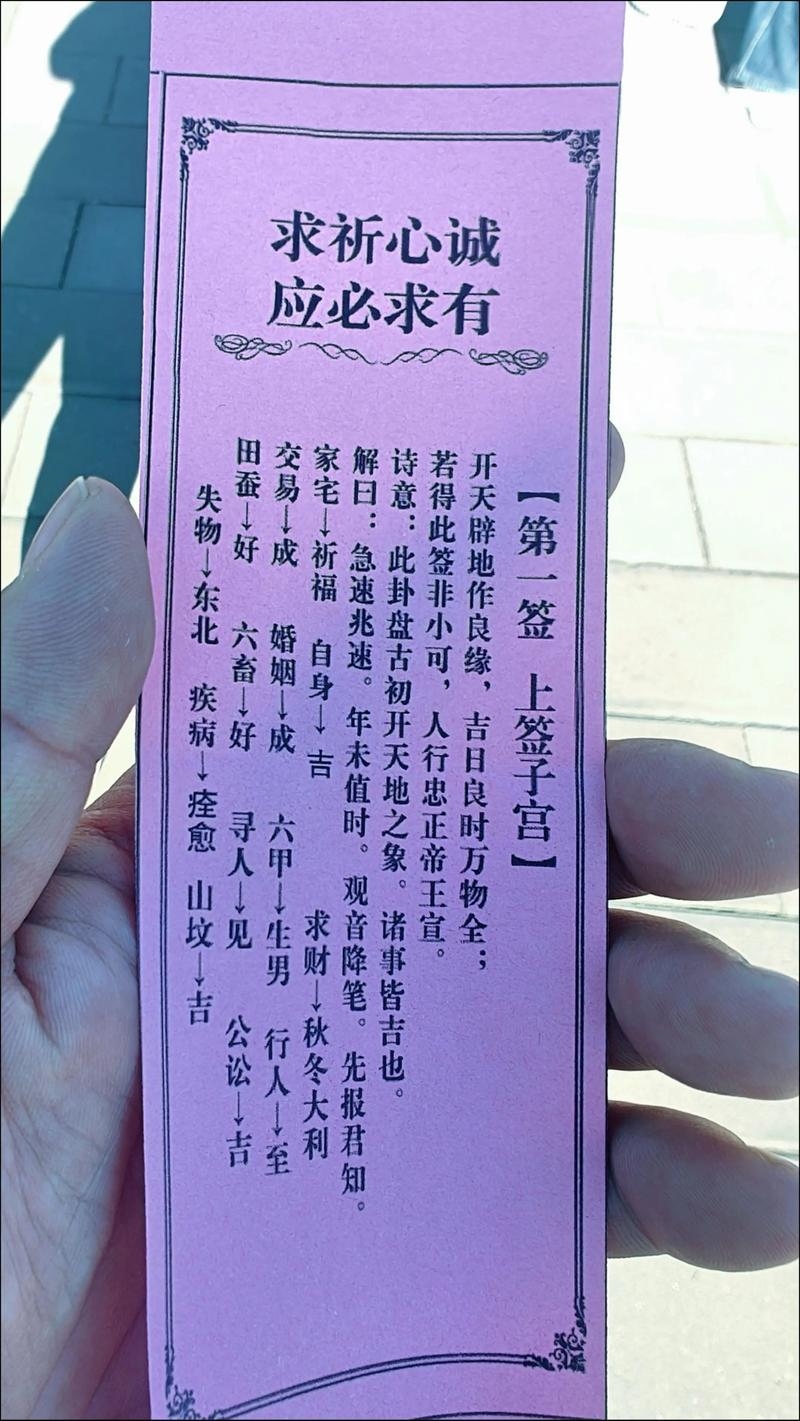 诚心祈求
有求必应
【第一签 上签子宫】
开天辟地作良缘，吉日良时万物全；
若得此签非小可，人行忠正帝王宣。
诗意：此卦盘古初开天地之象。诸事皆吉也。
解曰：急速兆速。年未值时。观音降笔。先报君知。
家宅→祈福 自身→吉 求财→秋冬大利
交易→成 婚姻→成 六甲→生男 行人→至
田蚕→好 六畜→好 寻人→见 公讼→吉
失物→东北 疾病→痊愈 山坟→吉